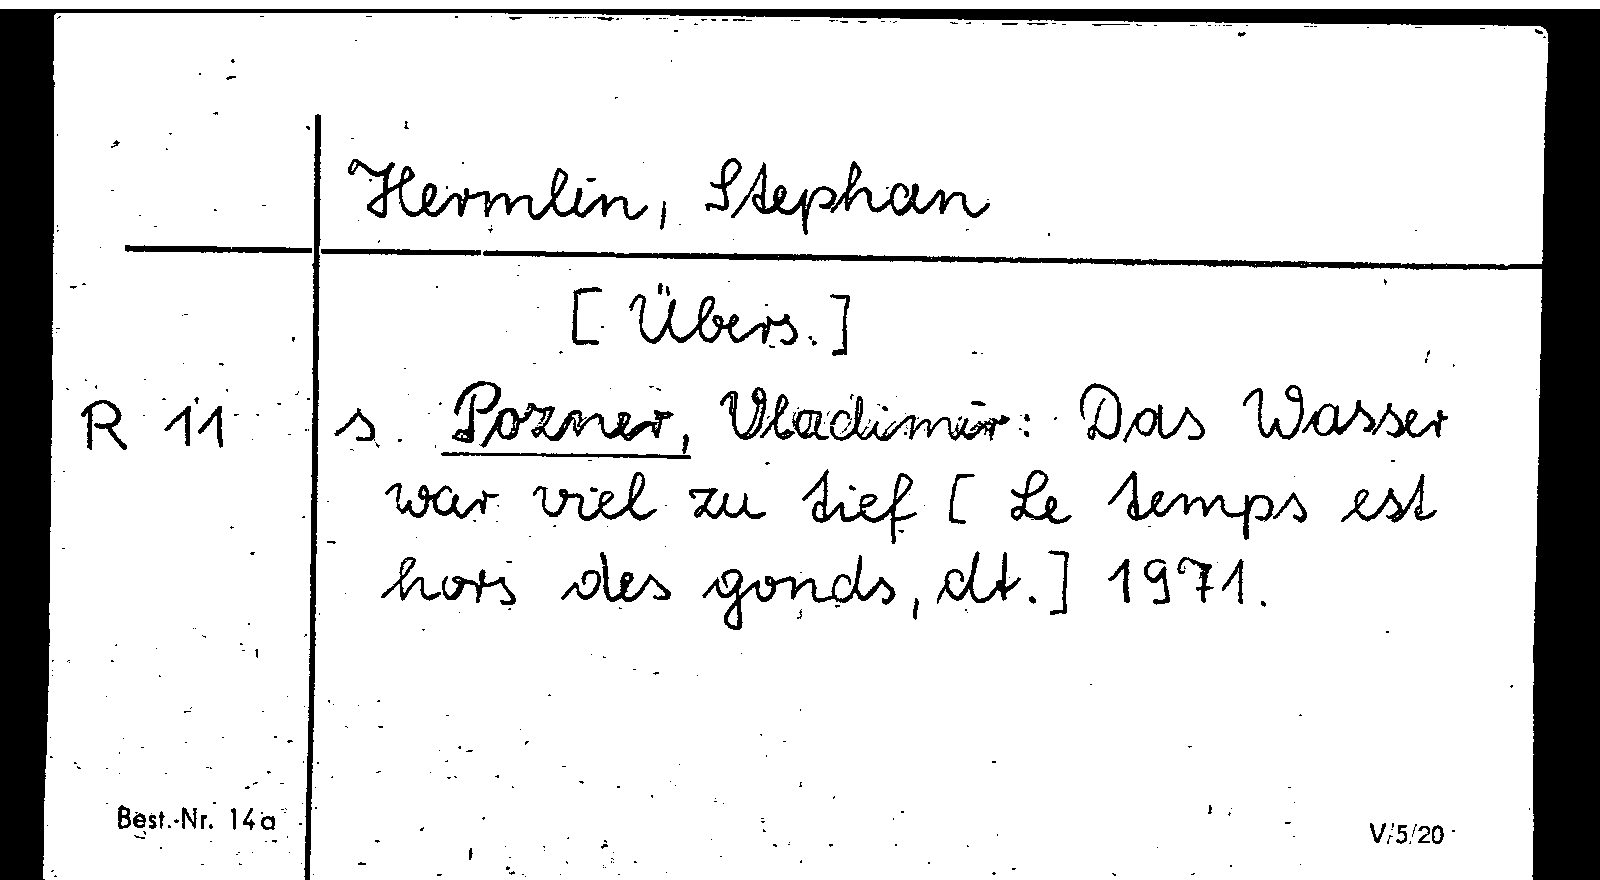 Hermlin, Stephan
[Übers.]
R 11 s. Pozner, Vladimir: Das Wasser
war viel zu tief [Le temps est
hors des gonds, dt.] 1971.
Best.-Nr. 14a V/5/20